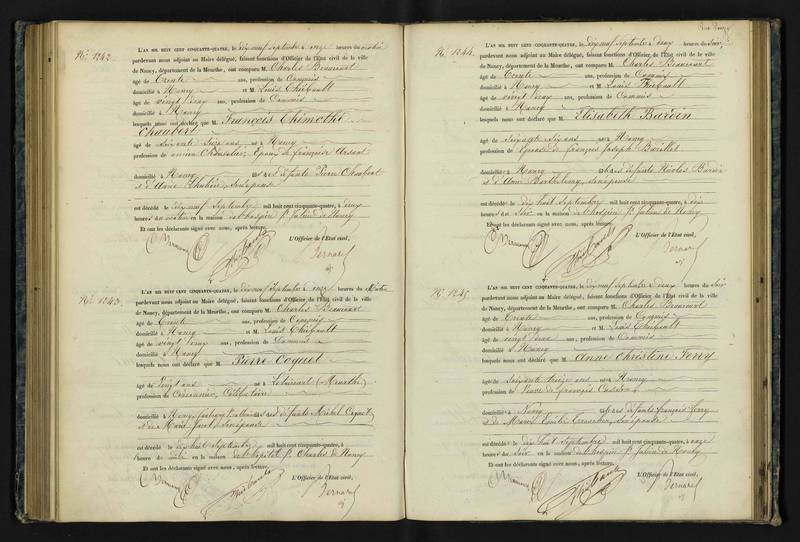 No. 1242.
L'AN MIL HUIT CENT CINQUANTE-QUATRE, le dix neuf Septembre à onze heures du matin
pardevant nous adjoint au Maire délégué, faisant fonctions d'Officier de l'Etat civil de la ville
de Nancy, département de la Meurthe, ont comparu M. Charles
âgé de trente ans, profession de Commis
domicilié à Nancy et M. Louis Thiébault
âgé de vingt ans, profession de Commis
domicilié à Nancy
lesquels nous ont déclaré que M. François Thimothé
Chaubert
âgé de soixante ans né à Nancy
profession de ancien Epoux de françoise
domicilié à Nancy fils de défunts Pierre Chaubert
et d'Anne
est décédé le dix neuf Septembre mil huit cent cinquante-quatre, à deux
heures du matin en la maison de l'hospice St. Julien de Nancy
Et ont les déclarants signé avec nous, après lecture.
L'Officier de l'Etat civil,
Thiébault
Bernard
No. 1243.
L'AN MIL HUIT CENT CINQUANTE-QUATRE, le dix neuf Septembre à onze heures du Matin
pardevant nous adjoint au Maire délégué, faisant fonctions d'Officier de l'Etat civil de la ville
de Nancy, département de la Meurthe, ont comparu M. Charles
âgé de trente ans, profession de Commis
domicilié à Nancy et M. Louis Thiébault
âgé de vingt ans, profession de Commis
domicilié à Nancy
lesquels nous ont déclaré que M. Pierre Coquet
âgé de vingt ans né à (Meurthe)
profession de Célibataire
domicilié à Nancy, fils de défunts Michel Coquet
et de Marie
est décédé le dix huit Septembre mil huit cent cinquante-quatre, à
heures de en la maison de l'hôpital St. Charles de Nancy
Et ont les déclarants signé avec nous, après lecture.
L'Officier de l'Etat civil,
Thiébault
Bernard
No. 1244.
L'AN MIL HUIT CENT CINQUANTE-QUATRE, le dix neuf Septembre à deux heures du Soir,
pardevant nous adjoint au Maire délégué, faisant fonctions d'Officier de l'Etat civil de la ville
de Nancy, département de la Meurthe, ont comparu M. Charles
âgé de trente ans, profession de Commis
domicilié à Nancy et M. Louis Thiébault
âgé de vingt ans, profession de Commis
domicilié à Nancy
lesquels nous ont déclaré que M. Elisabeth
âgé de soixante six ans né à Nancy
profession de Epouse de françois Joseph
domicilié à Nancy fils de défunts Nicolas
et d'Anne Barthelemy,
est décédé le dix huit Septembre mil huit cent cinquante-quatre, à dix
heures du Soir en la maison de l'hospice St. Julien de Nancy
Et ont les déclarants signé avec nous, après lecture.
L'Officier de l'Etat civil,
Thiébault
Bernard
No. 1245.
L'AN MIL HUIT CENT CINQUANTE-QUATRE, le dix neuf Septembre à deux heures du Soir
pardevant nous adjoint au Maire délégué, faisant fonctions d'Officier de l'Etat civil de la ville
de Nancy, département de la Meurthe, ont comparu M. Charles
âgé de trente ans, profession de Commis
domicilié à Nancy et M. Louis Thiébault
âgé de vingt ans, profession de Commis
domicilié à Nancy
lesquels nous ont déclaré que M. Anne Christine Ferry
âgé de soixante treize ans né à Nancy
profession de Veuve de François
domicilié à Nancy fils de défunts françois ferry
et de
est décédé le dix huit Septembre mil huit cent cinquante-quatre, à onze
heures du Soir en la maison de l'hospice St. Julien de Nancy
Et ont les déclarants signé avec nous, après lecture.
L'Officier de l'Etat civil,
Thiébault
Bernard